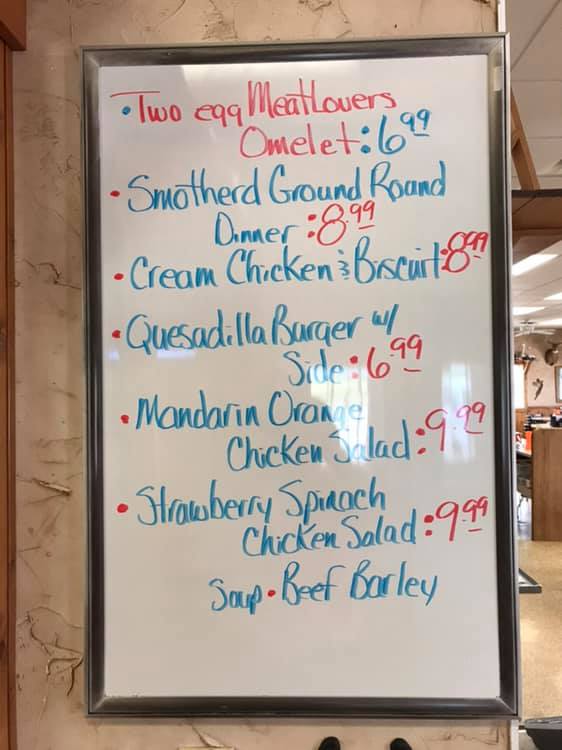 • Two egg MeatLovers
Omelet: 6.99
• Smotherd Ground Round
Dinner: 8.99
• Cream Chicken & Biscuit: 8.99
• Quesadilla Burger w/
Side: 6.99
• Mandarin Orange
Chicken Salad: 9.99
• Strawberry Spinach
Chicken Salad: 9.99
Soup • Beef Barley